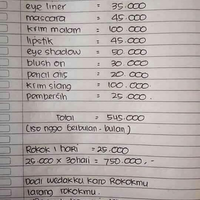 eye liner = 35.000
mascara = 45.000
krim malam = 100.000
lipstik = 45.000
eye shadow = 50.000
blush on = 30.000
pencil alis = 20.000
krim siang = 100.000
pembersih = 25.000.
Total = 545.000
(iso nggo berbulan-bulan)
Rokok 1 hari = 25.000
25.000 x 30 hari = 750.000,-
Dadi wedakku karo Rokokmu
larang rokokmu.